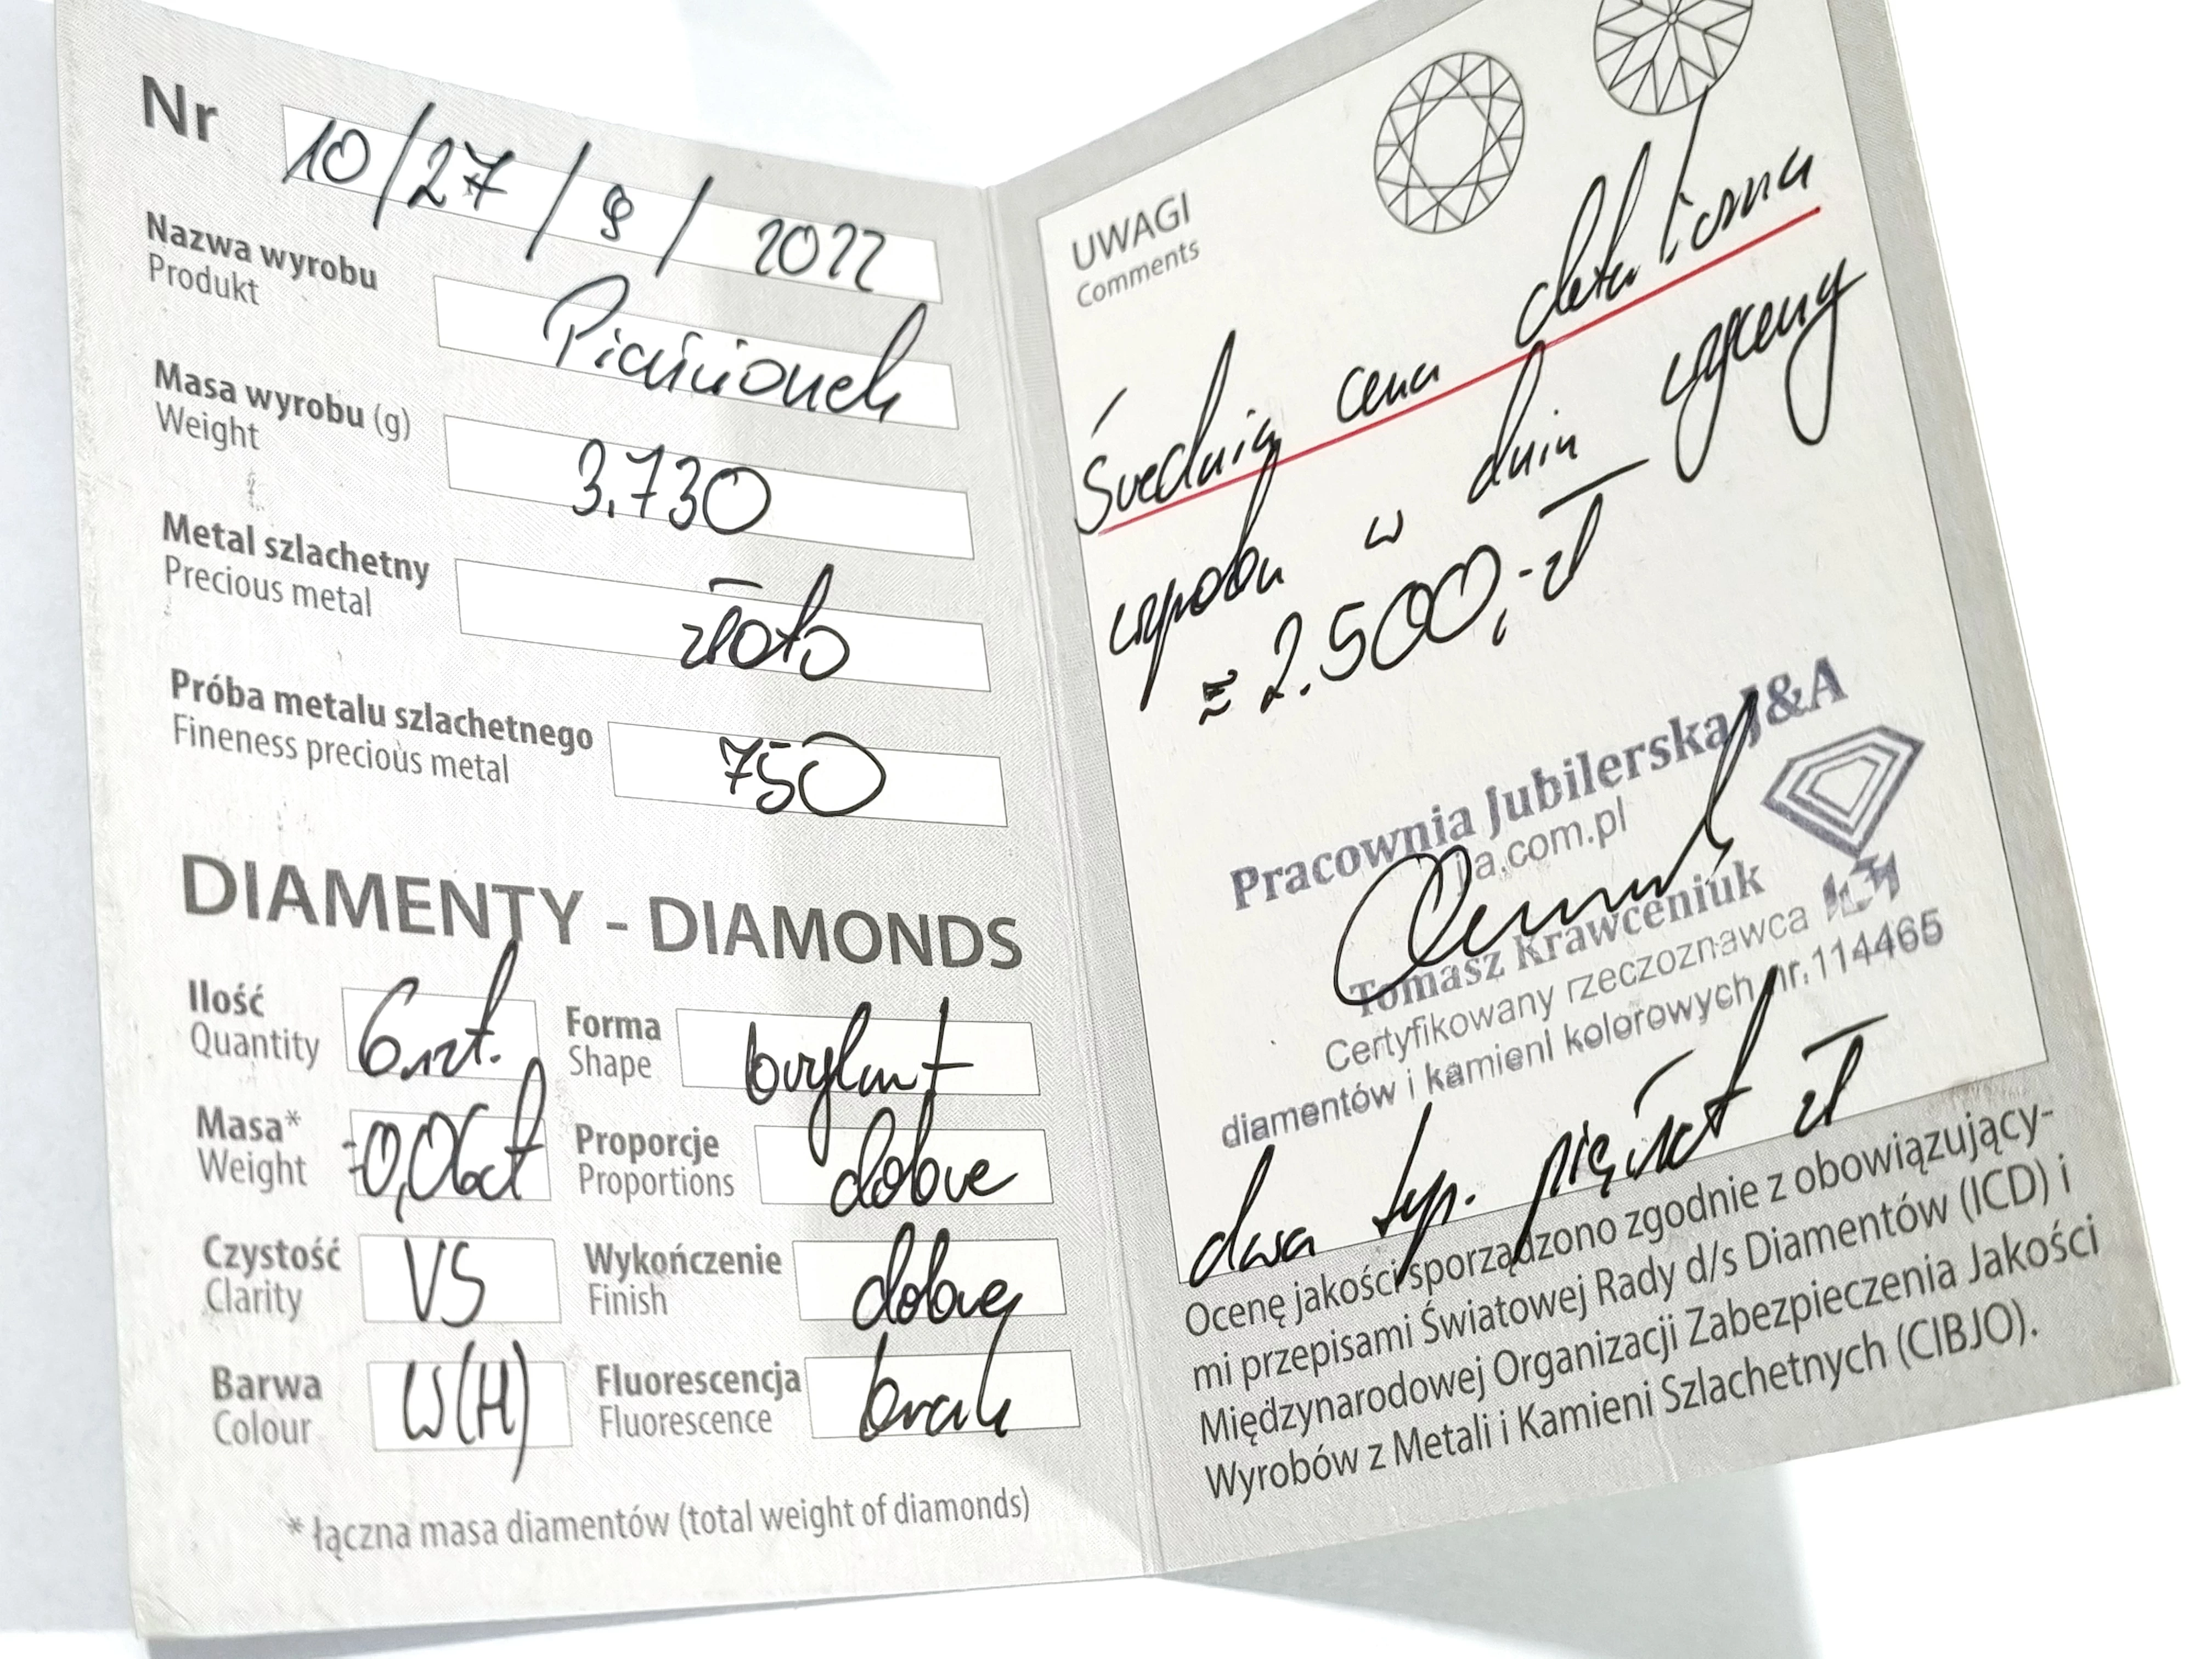 Nr 10/27/9/2022
Nazwa wyrobu
Produkt
Pierścionek
Masa wyrobu (g)
Weight
3.730
Metal szlachetny
Precious metal
złoto
Próba metalu szlachetnego
Fineness precious metal
750
DIAMENTY - DIAMONDS
Ilość
Quantity
6szt.
Forma
Shape
brylant
Masa*
Weight
0,06ct
Proporcje
Proportions
dobre
Czystość
Clarity
VS
Wykończenie
Finish
dobre
Barwa
Colour
W(H)
Fluorescencja
Fluorescence
brak
* łączna masa diamentów (total weight of diamonds)
UWAGI
Comments
Średnia cena detaliczna
wyrobu w dniu wyceny
≈ 2.500,- zł
Pracownia Jubilerska J&A
ja.com.pl
Tomasz Krawceniuk
Certyfikowany rzeczoznawca
diamentów i kamieni kolorowych nr.114465
dwa tyś. pięćset zł
Ocenę jakości sporządzono zgodnie z obowiązujący-
mi przepisami Światowej Rady d/s Diamentów (ICD) i
Międzynarodowej Organizacji Zabezpieczenia Jakości
Wyrobów z Metali i Kamieni Szlachetnych (CIBJO).